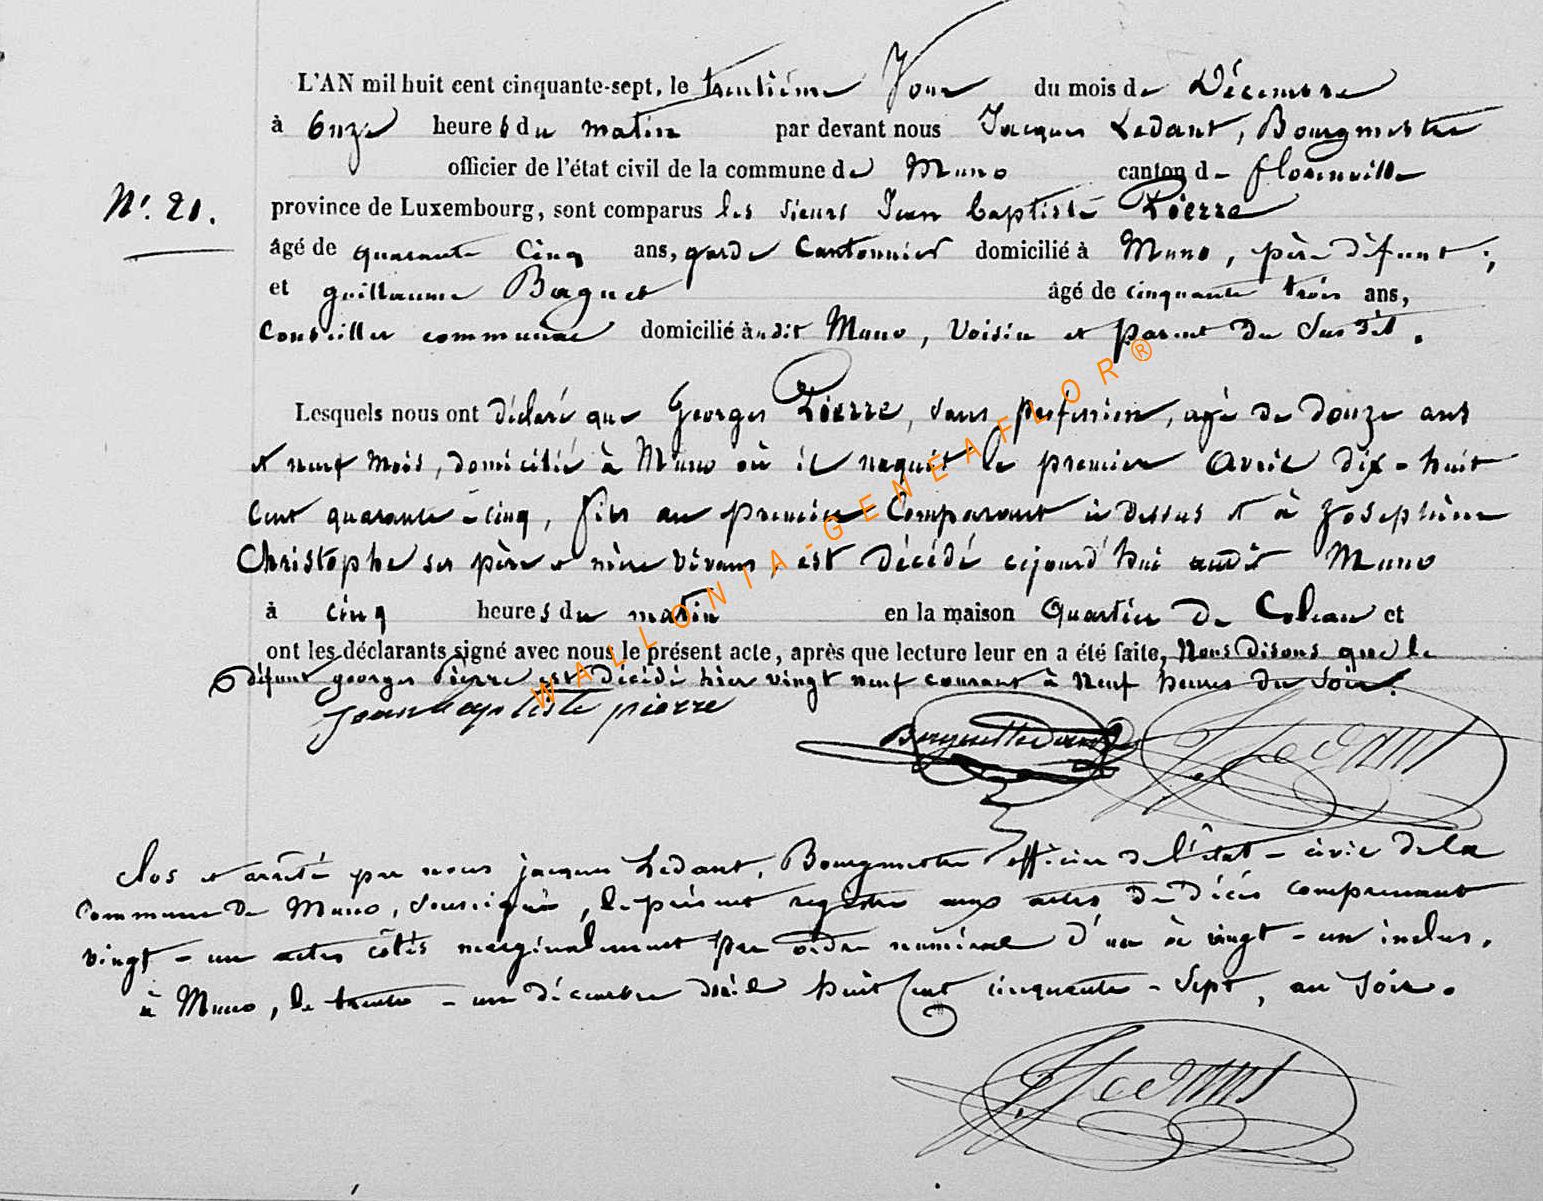 L'AN mil huit cent cinquante-sept, le trentième Jour du mois de Décembre
à Onze heures du matin par devant nous Jacques Ledant, Bourgmestre
officier de l'état civil de la commune de Muno canton de florenville
N°. 21.
province de Luxembourg, sont comparus les sieurs Jean baptiste Pierre
âgé de quarante cinq ans, garde Cantonnier domicilié à Muno, père défunt ;
et guillaume Baguet âgé de cinquante trois ans,
Conseiller communal domicilié audit Muno, Voisin et parent du Susdit.
Lesquels nous ont déclaré que Georges Pierre, sans profession, agé de douze ans
et neuf mois, domicilié à Muno où il naquit le premier avril dix-huit
Cent quarante-cinq, fils au premier Comparant ci dessus et à Joséphine
Christophe ses père et mère vivans, est décédé cejourd'hui audit Muno
à cinq heures du matin en la maison Quartier de et
ont les déclarants signé avec nous le présent acte, après que lecture leur en a été faite, Nous disons que le
défunt georges Pierre est décédé hier vingt neuf courant à Neuf heures du Soir.
Jean baptiste pierre
J Ledant
WALLONIA-GENEAFLOR®
Clos et arrêté par nous jacques Ledant, Bourgmestre officier de l'état-civil de la
Commune de Muno, soussigné, le présent registre aux actes de Décès comprenant
vingt-un actes côtés marginalement par ordre numéral d'un à vingt-un inclus.
à Muno, le trente-un décembre dix huit Cent cinquante-Sept, au Soir.
J Ledant